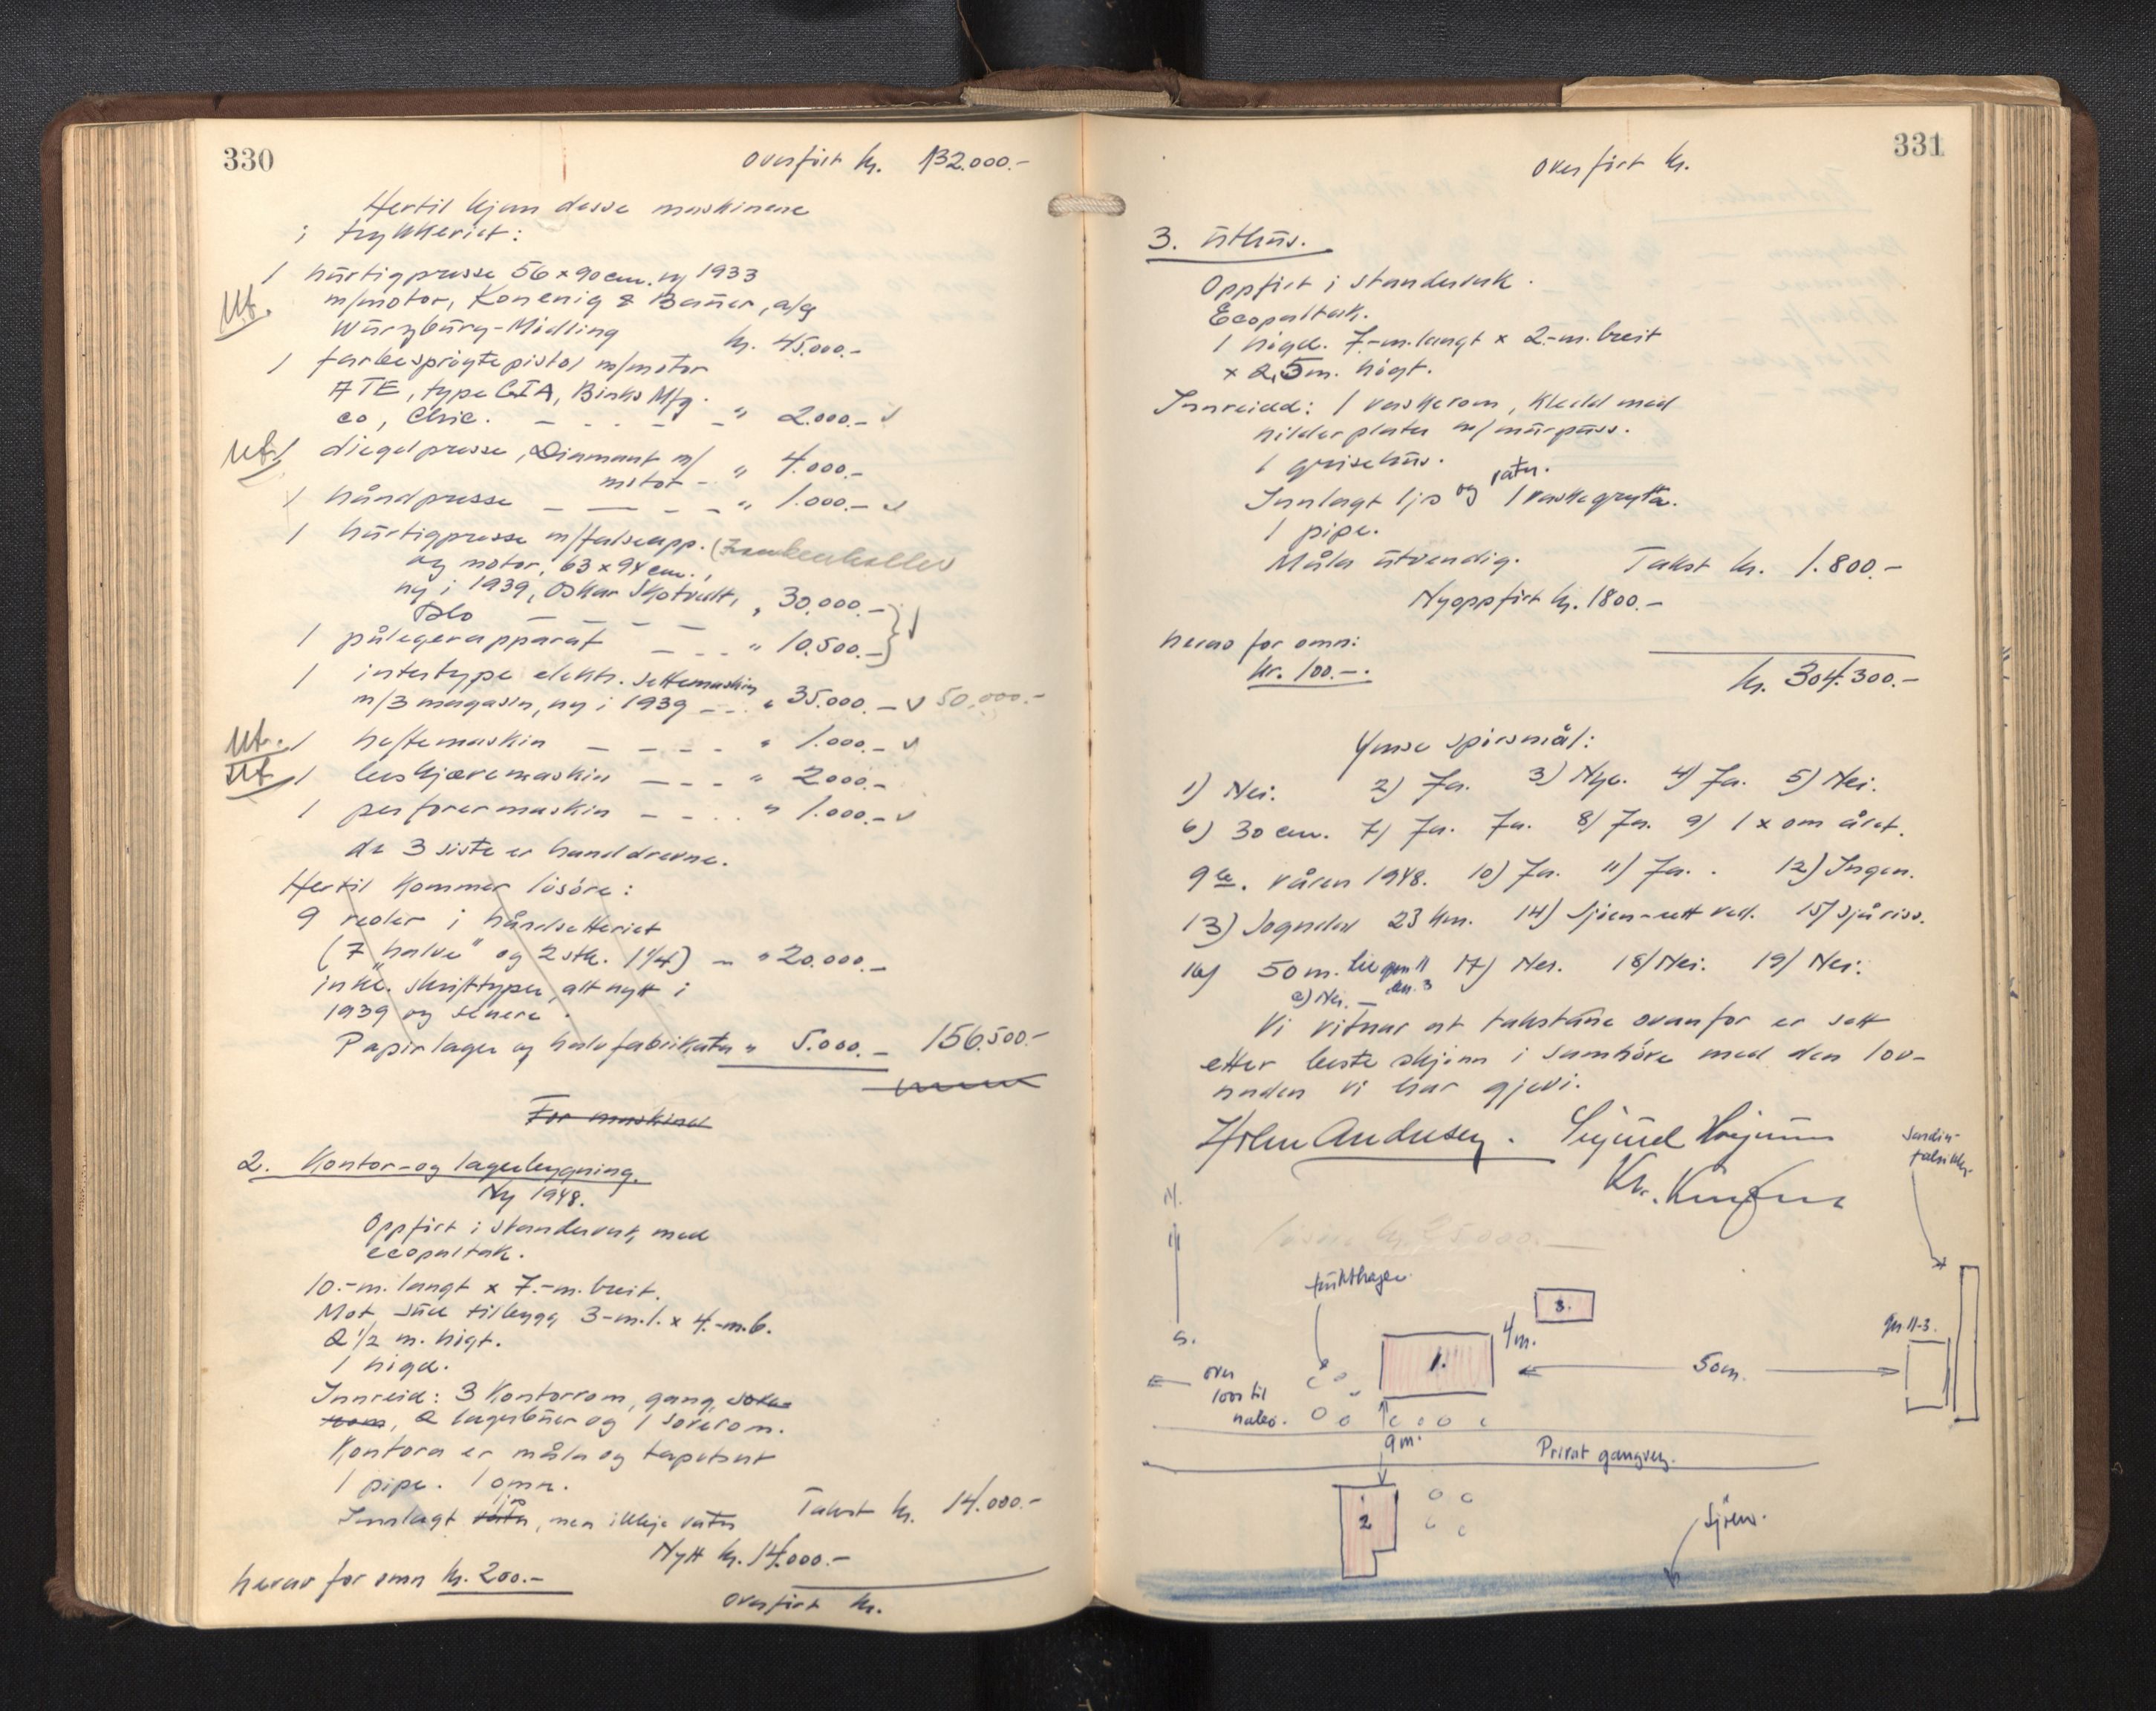 330
Overført kr. 132.000.-
Hertil kjem desse maskinene
i trykkeriet:
1 hurtigpresse 56 x 90 cm. ny 1933
Ut.
m/motor, Konenig & Bauer, a/g
Würzburg-Mödling kr. 45.000.-
1 farbesprøytepistol m/motor
ATE, type GIA, Binks Mfg.
co, Chic. - - - - " 2.000.- v
Ut. 1 diegelpresse, Diamant m/
motor - " 4.000.-
1 håndpresse - - - - " 1.000.- v
1 hurtigpresse m/falseapp. (Frankenthaller
og motor, 63 x 94 cm.,
ny i 1939, Oskar Skotvedt,
Oslo - - - - " 30.000.-
1 påleggerapparat - - - " 10.500.- v
1 intertype elektr. settemaskin
m/3 magasin, ny i 1939 - - " 35.000.- v 50.000.-
Ut. 1 heftemaskin - - - - " 1.000.- v
Ut. 1 beskjæremaskin - - - " 2.000.-
1 perforermaskin - - - - " 1.000.- v
de 3 siste er hånddrevne.
Hertil kommer lösöre:
9 reoler i håndsetteriet
(7 "halve" og 2 stk. 1 1/4) - " 20.000.-
inkl. skrifttyper, alt nytt i
1939 og senere.
Papirlager og halvfabrikata " 5.000.- 156.500.-
For maskiner
2. Kontor- og lagerbygning.
Ny 1948.
Oppført i standerverk, med
ecopaltak.
10.-m. langt x 7.-m. breit.
Mot süd tilbygg 3-m.l. x 4.-m.b.
2 1/2 m. högt.
1 högd.
Innreid: 3 kontorrom, gang, sove
rom, 2 lagerbuer og 1 soverom.
Kontora er måla og tapetsert
1 pipe. 1 omn.
Innlagt vatn ljos, men ikkje vatn Takst kr. 14.000.-
Nytt kr. 14.000.-
herav for omn kr. 200.-
Overført kr.
331
Overført kr.
3. Uthus.
Oppført i standerverk.
Ecopaltak.
1 högd. 7.-m. langt x 2.-m. breit
x 2,5 m. högt.
Innreidd: 1 vaskerom, kledd med
hilderplater m/murpuss.
1 grisehus.
Innlagt ljos og vatn. 1 vaskegryta.
1 pipe.
Måla utvendig. Takst kr. 1.800.-
Nyoppført kr. 1800.-
herav for omn:
kr. 100.-.
kr. 304.300.-
Ymse spörsmål:
1) Nei. 2) Ja. 3) Nye. 4) Ja. 5) Nei.
6) 30 cm. 7) Ja. Ja. 8) Ja. 9) 1 x om året.
9 b. våren 1948. 10) Ja. 11) Ja. . 12) Ingen.
13) Sogndal 23 km. 14) Sjöen - rett ved. 15) Sjå riss.
16) 50 m. til gnr 11 bnr. 3 17) Nei. 18) Nei. 19) Nei.
a) Nei. -
Vi vitnar at takstane ovanfor er sett
etter beste skjønn i samhöve med den lov-
naden vi har gjevi.
Holm Andersen. Sigurd
Kr.
N.
S.
Sardin-
fabrikk.
frukthage
3.
4 m.
1.
gnr 11-3.
50 m.
over
100 m til
nabo.
9 m.
Privat gangveg.
2
Sjöen.